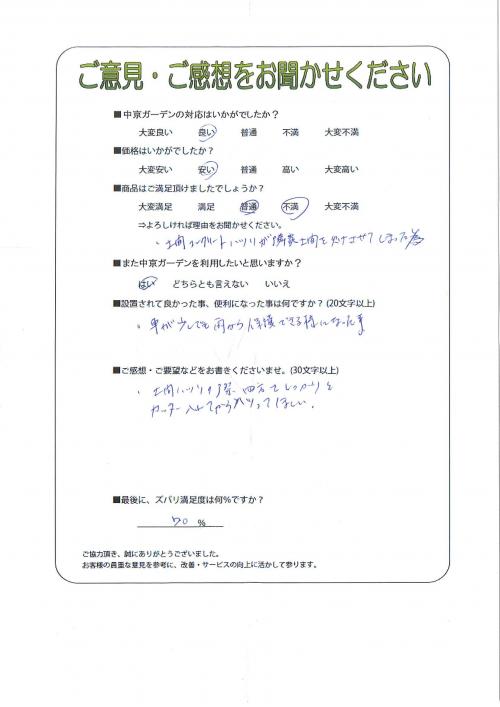 ご意見・ご感想をお聞かせください
■中京ガーデンの対応はいかがでしたか?
大変良い 良い 普通 不満 大変不満
■価格はいかがでしたか?
大変安い 安い 普通 高い 大変高い
■商品はご満足頂けましたでしょうか?
大変満足 満足 普通 不満 大変不満
⇒よろしければ理由をお聞かせください。
・土間コンクリートハツリが隣接土間を欠けさせてしまった為
■また中京ガーデンを利用したいと思いますか?
はい どちらとも言えない いいえ
■設置されて良かった事、便利になった事は何ですか? (20文字以上)
・車が少しでも雨から保護できる様になった事
■ご感想・ご要望などをお書きくださいませ。(30文字以上)
・土間ハツリの際、四方でしっかりと
カッター入れてからハツってほしい。
■最後に、ズバリ満足度は何%ですか?
70 %
ご協力頂き、誠にありがとうございました。
お客様の貴重な意見を参考に、改善・サービスの向上に活かして参ります。